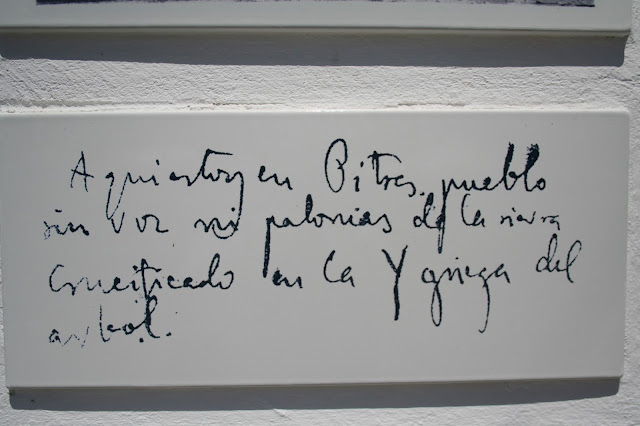 Aquiestoy en Pitres, pueblo
sin voz ni palomas de la sierra
crucificado en la Y griega del
arbol.